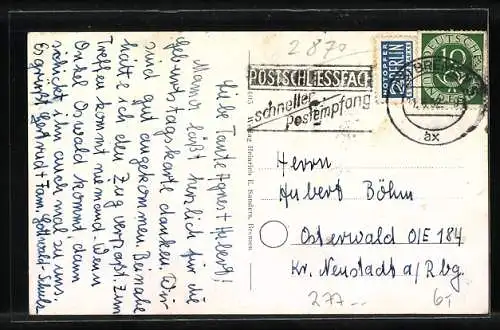 Liebe Tante Agnes + Hubert!
Mama läßt herzlich für die
Geburtstagskarte danken. Wir
sind gut angekommen. Beinahe
hätte ich den Zug verpaßt. Zum
Treffen kommt niemand. Wenn
Onkel Oswald kommt dann
schickt ihn auch mal zu uns.
Es grüßt Gertrud + Fam. Gottwald-Schulz
Verlag Heinrich E. Sanders, Bremen
2870
POSTSCHLIESSFACH
schneller
Postempfang
NOTOPFER
2 BERLIN
STEUERMARKE
DEUTSCHE
10
BREMEN 5
ax
Herrn
Hubert Böhm
Osterwald O/E 184
Kr. Neustadt a/Rbg.
277.--
6,-